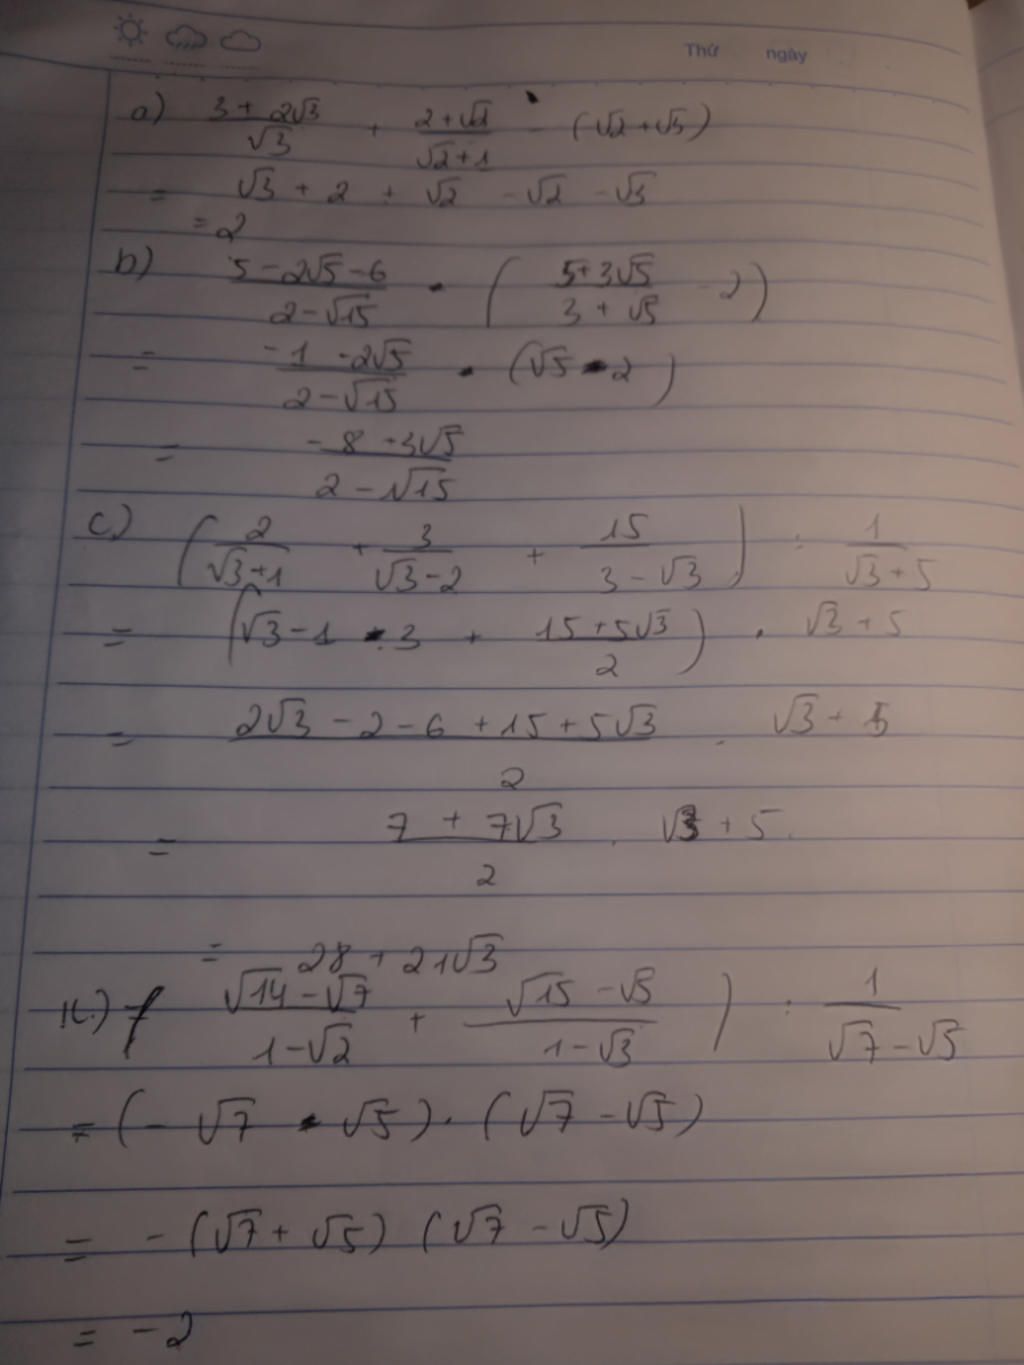 Thứ ngày
a) (3 + 2√3)/√3 + (2+√2)/(√2+1) - (√2+√3)
= √3 + 2 + √2 - √2 - √3
= 2
b) (5 - 2√5 - 6)/(2 - √15) · ((5+3√5)/(3+√5) - 2)
= (-1 - 2√5)/(2 - √15) · (√5 - 2)
= (-8 + 3√5)/(2 - √15)
c) (2/(√3+1) + 3/(√3-2) + 15/(3-√3)) : 1/(√3+5)
= (√3 - 1 - 3 + (15+5√3)/2) . √3 + 5
= (2√3 - 2 - 6 + 15 + 5√3)/2 . √3 + 5
= (7 + 7√3)/2 . √3 + 5
= 28 + 21√3
(√14 - √7)/(1-√2) + (√15 - √5)/(1-√3)) : 1/(√7-√5)
= (-√7 - √5) . (√7 - √5)
= -(√7 + √5) (√7 - √5)
= -2